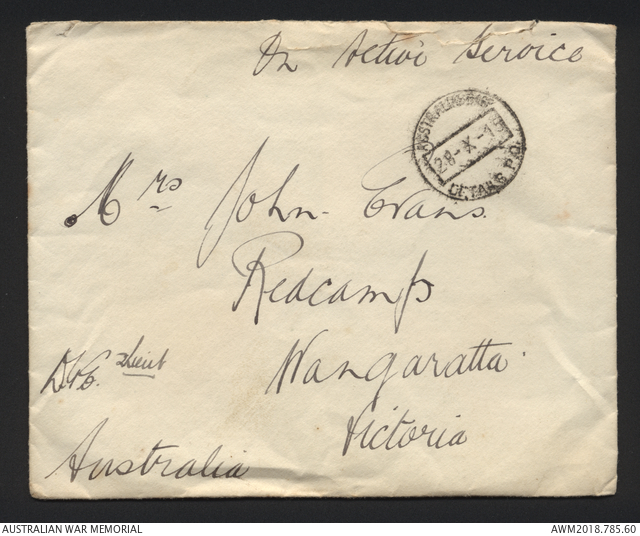 On Active Service
AUSTRALIAN BASE
28-X-1
DETAILS P.O.
Mrs John Evans.
Redcamp
Wangaratta.
Victoria
2Lieut
Australia
AUSTRALIAN WAR MEMORIAL
AWM2018.785.60